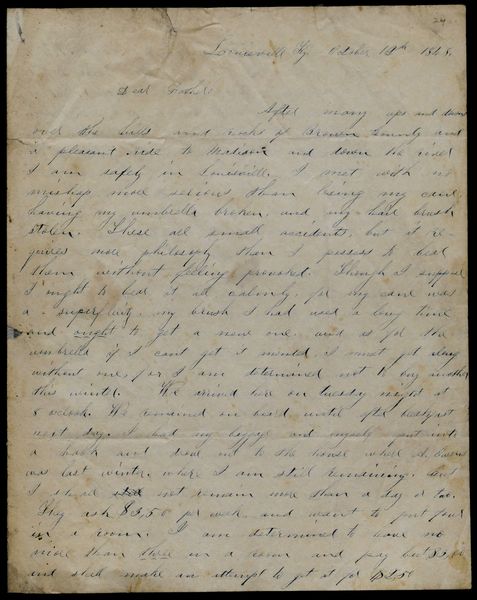 24
Louisville Ky. October 12th 1848.
Dear
After many ups and downs
over the hills and rocks of Brown County and
a pleasant ride to Madison and down the river
I am safely in Louisville. I met with no
mishap more serious than losing my cane,
having my umbrella broken, and my hair brush
stolen. These all small accidents, but it re-
quires more philosophy than I possess to bear
them without feeling provoked. Though I suppose
I ought to bear it all calmly, for my cane was
a superfluity, my brush I had used a long time
and ought to get a new one and as for the
umbrella if I cant get it mended, I must get along
without one, for I am determined not to buy another
this winter. We arrived here on tuesday night at
8 oclock. We remained on board until after breakfast
next day. I had my baggage and myself put into
a hack and drove out to the house where
was last winter, where I am still remaining. But
I shall not remain more than a day or two.
They ask $3,50 per week and want to put four
in a room. I am determined to have no
more than three in a room and pay but $3,00
and shall make an attempt to get it for $2,50